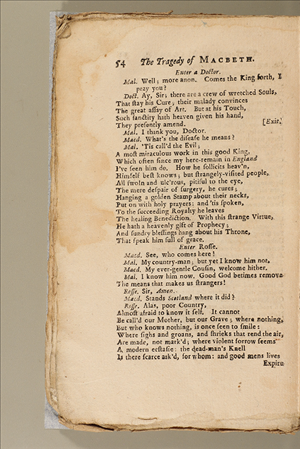 54 The Tragedy of MACBETH.
Enter a Doctor.
Mal. Well; more anon. Comes the King forth, I
pray you?
Doct. Ay, Sir; there are a crew of wretched Souls,
That stay his Cure; their malady convinces
The great assay of Art. But at his Touch,
Such sanctity hath heaven given his hand,
They presently amend. [Exit.
Mal. I thank you, Doctor.
Macd. What's the disease he means?
Mal. 'Tis call'd the Evil;
A most miraculous work in this good King,
Which often since my here-remain in England
I've seen him do. How he sollicits heav'n,
Himself best knows; but strangely-visited people,
All swoln and ulc'rous, pitiful to the eye,
The mere despair of surgery, he cures;
Hanging a golden Stamp about their necks,
Put on with holy prayers: and 'tis spoken,
To the succeeding Royalty he leaves
The healing Benediction. With this strange Virtue,
He hath a heavenly gift of Prophecy;
And sundry blessings hang about his Throne,
That speak him full of grace.
Enter Rosse.
Macd. See, who comes here!
Mal. My country-man; but yet I know him not.
Macd. My ever-gentle Cousin, welcome hither.
Mal. I know him now. Good God betimes remove
The means that makes us strangers!
Rosse. Sir, Amen.
Macd. Stands Scotland where it did?
Rosse. Alas, poor Country,
Almost afraid to know it self. It cannot
Be call'd our Mother, but our Grave; where nothing,
But who knows nothing, is once seen to smile:
Where sighs and groans, and shrieks that rend the air,
Are made, not mark'd; where violent sorrow seems
A modern ecstasie: the dead-man's Knell
Is there scarce ask'd, for whom: and good mens lives
Expire